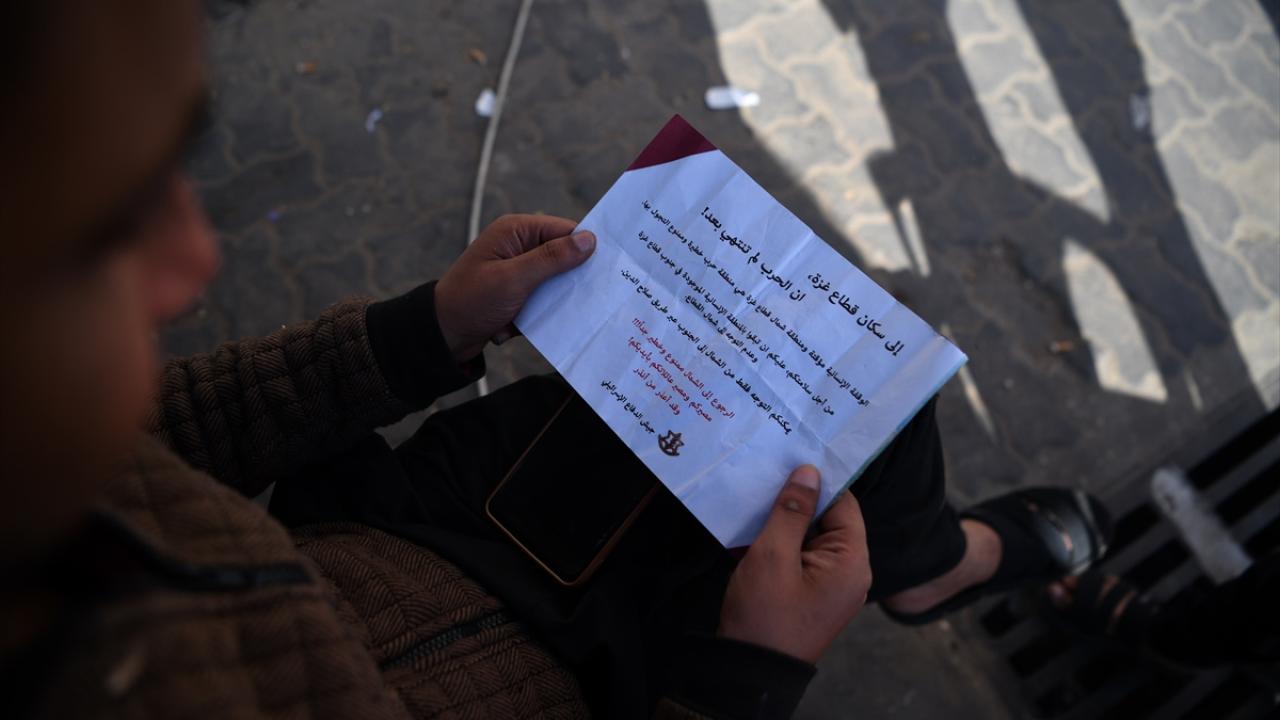 إلى سكان قطاع غزة،
ان الحرب لم تنتهي بعد!
الوقفة الإنسانية مؤقتة ومنطقة شمال قطاع غزة هي منطقة حرب خطيرة وممنوع التجول بها.
من أجل سلامتكم، عليكم ان تبقوا بالمنطقة الإنسانية الموجودة في جنوب قطاع غزة
وعدم التوجه إلى شمال القطاع.
يمكنكم التوجه فقط من الشمال إلى الجنوب عبر طريق صلاح الدين.
الرجوع إلى الشمال ممنوع وخطير جدًا!!!
مصيركم ومصير عائلاتكم بأيديكم!
وقد أعذر من أنذر
جيش الدفاع الإسرائيلي